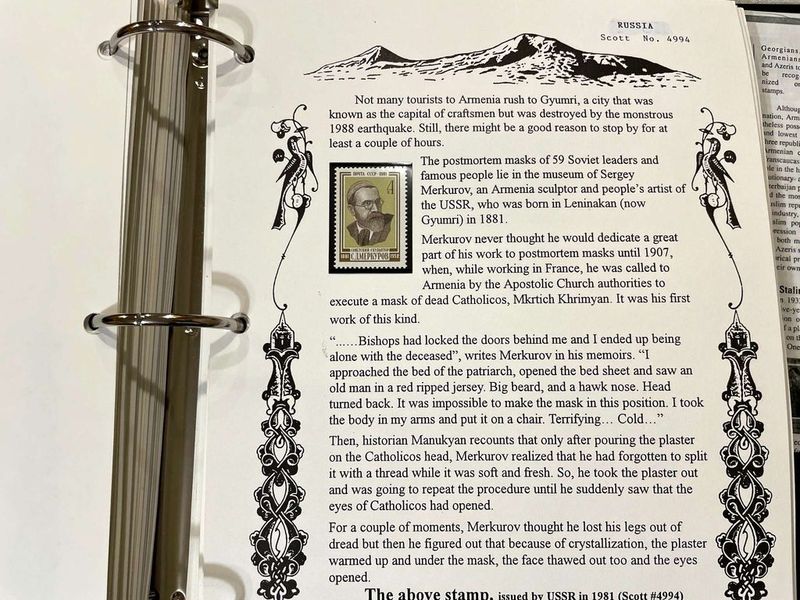 RUSSIA
Scott No. 4994
Not many tourists to Armenia rush to Gyumri, a city that was
known as the capital of craftsmen but was destroyed by the monstrous
1988 earthquake. Still, there might be a good reason to stop by for at
least a couple of hours.
The postmortem masks of 59 Soviet leaders and
famous people lie in the museum of Sergey
Merkurov, an Armenia sculptor and people's artist of
the USSR, who was born in Leninakan (now
Gyumri) in 1881.
ПОЧТА СССР·1981
4
СОВЕТСКИЙ СКУЛЬПТОР
С.Д.МЕРКУРОВ
1881 1952
Merkurov never thought he would dedicate a great
part of his work to postmortem masks until 1907,
when, while working in France, he was called to
Armenia by the Apostolic Church authorities to
execute a mask of dead Catholicos, Mkrtich Khrimyan. It was his first
work of this kind.
"……Bishops had locked the doors behind me and I ended up being
alone with the deceased", writes Merkurov in his memoirs. "I
approached the bed of the patriarch, opened the bed sheet and saw an
old man in a red ripped jersey. Big beard, and a hawk nose. Head
turned back. It was impossible to make the mask in this position. I took
the body in my arms and put it on a chair. Terrifying… Cold…"
Then, historian Manukyan recounts that only after pouring the plaster
on the Catholicos head, Merkurov realized that he had forgotten to split
it with a thread while it was soft and fresh. So, he took the plaster out
and was going to repeat the procedure until he suddenly saw that the
eyes of Catholicos had opened.
For a couple of moments, Merkurov thought he lost his legs out of
dread but then he figured out that because of crystallization, the plaster
warmed up and under the mask, the face thawed out too and the eyes
opened.
The above stamp, issued by USSR in 1981 (Scott #4994)
Georgians
Armenians
and Azeris to
be recog-
nized
stamps.